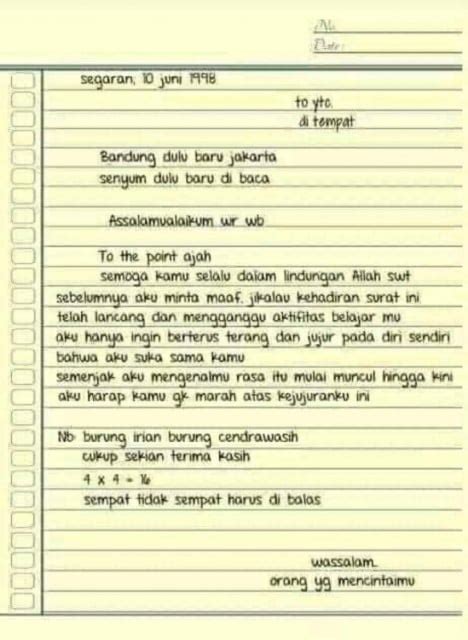 No.
Date:
segaran, 10 juni 1998
to yto.
di tempat
Bandung dulu baru jakarta
senyum dulu baru di baca
Assalamualaikum wr wb
To the point ajah
semoga kamu selalu dalam lindungan Allah swt
sebelumnya aku minta maaf. jikalau kehadiran surat ini
telah lancang dan mengganggu aktifitas belajar mu
aku hanya ingin berterus terang dan jujur pada diri sendiri
bahwa aku suka sama kamu
semenjak aku mengenalmu rasa itu mulai muncul hingga kini
aku harap kamu gk marah atas kejujuranku ini
Nb burung irian burung cendrawasih
cukup sekian terima kasih
4 x 4 = 16
sempat tidak sempat harus di balas
wassalam.
orang yg mencintaimu